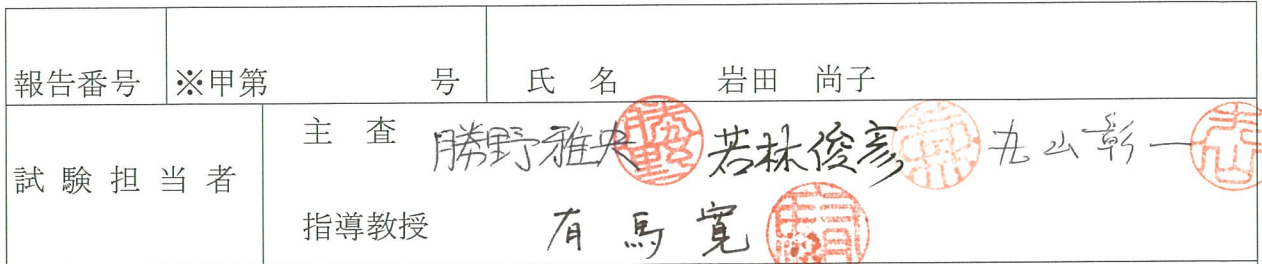 報告番号 ※甲第 号 氏 名 岩田 尚子
試 験 担 当 者
主 査 勝野雅央 若林俊彦 丸山彰一
指導教授 有馬寛